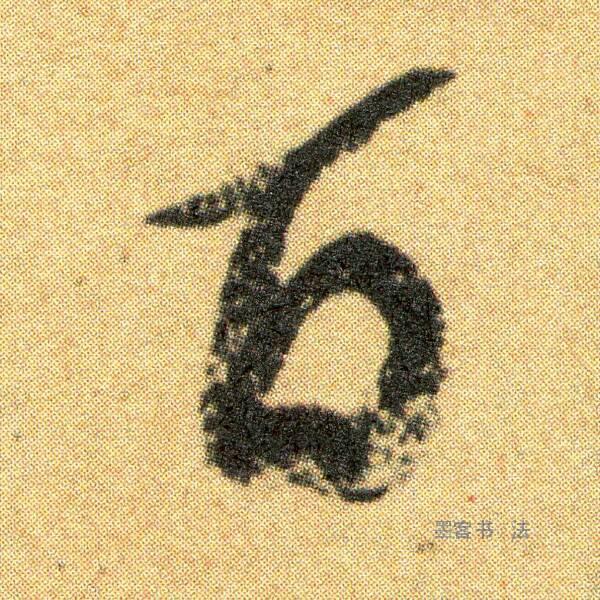 百
墨客书 法